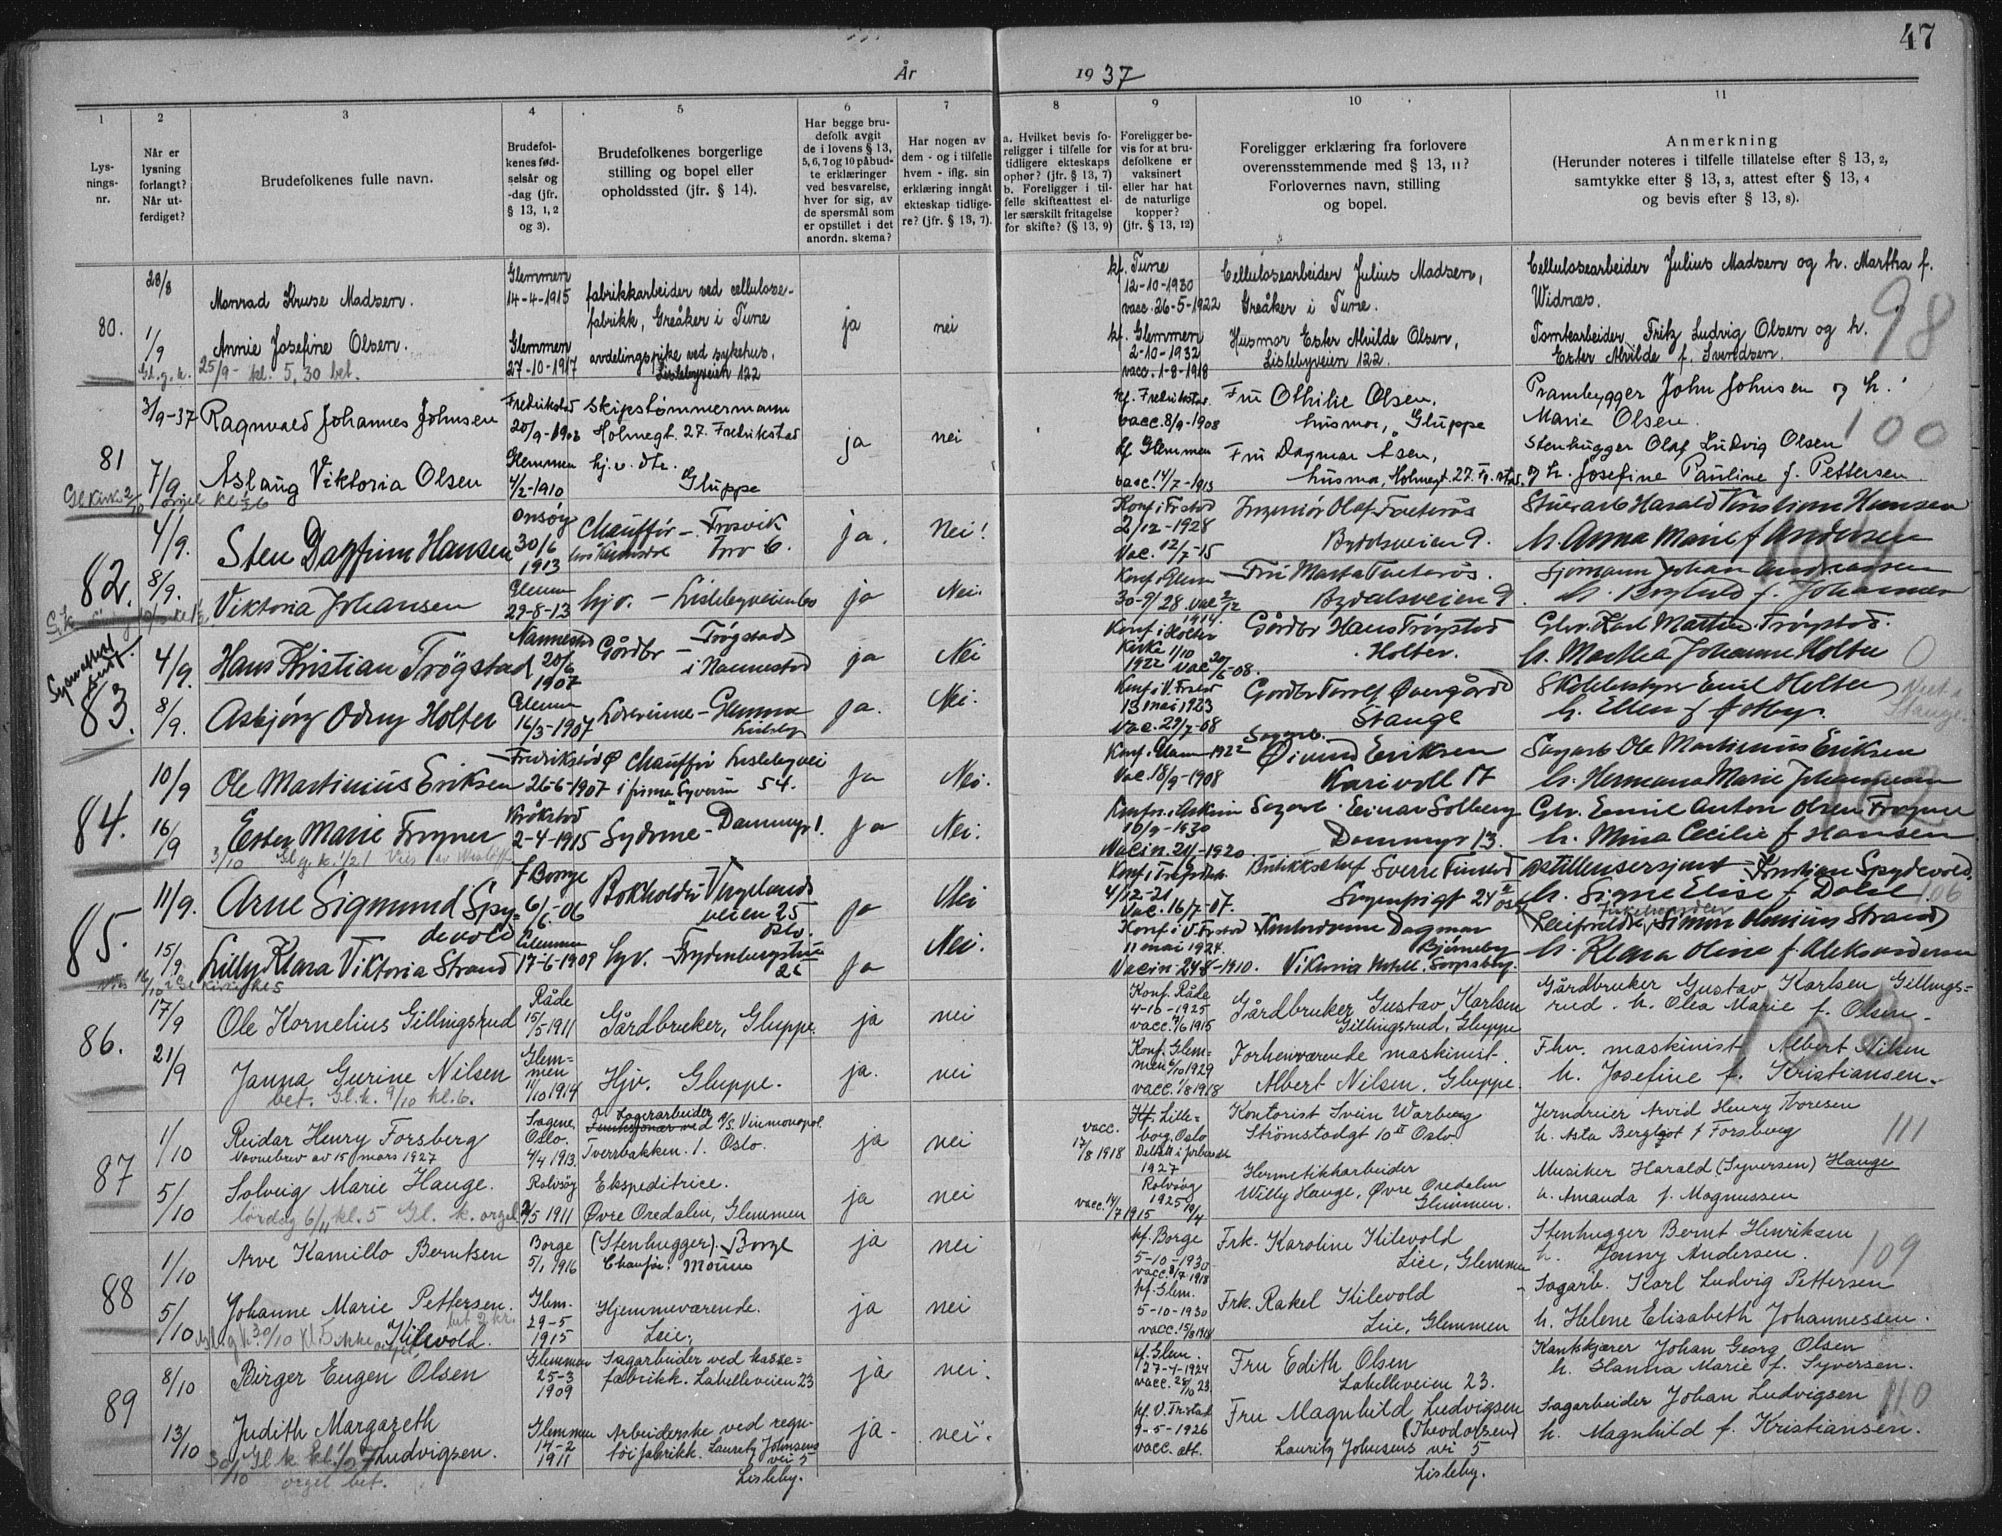 47
År 1937
1
2
3
4
5
6
7
8
9
10
11
Lys-
nings-
nr.
Når er
lysning
forlangt?
Når ut-
ferdiget?
Brudefolkenes fulle navn.
Brudefol-
kenes fød-
selsår og
-dag (jfr.
§ 13, 1, 2
og 3).
Brudefolkenes borgerlige
stilling og bopel eller
opholdssted (jfr. § 14).
Har begge bru-
defolk avgit
de i lovens § 13,
5, 6, 7 og 10 påbud-
te erklæringer
ved besvarelse,
hver for sig, av
de spørsmål som
er opstillet i det
anordn. skema?
Har nogen av
dem - og i tilfelle
hvem - iflg. sin
erklæring inngåt
ekteskap tidlige-
re? (jfr. § 13, 7).
a. Hvilket bevis fo-
religger i tilfelle for
tidligere ekteskaps
ophør? (jfr. § 13, 7)
b. Foreligger i til-
felle skifteattest el-
ler særskilt fritagelse
for skifte? (§ 13, 9)
Foreligger be-
vis for at bru-
defolkene er
vaksinert
eller har hat
de naturlige
kopper?
(jfr. § 13, 12)
Foreligger erklæring fra forlovere
overensstemmende med § 13, 11?
Forlovernes navn, stilling
og bopel.
Anmerkning
(Herunder noteres i tilfelle tillatelse efter § 13, 2,
samtykke efter § 13, 3, attest efter § 13, 4
og bevis efter § 13, 8).
80.
28/8
Monrad Kruse Madsen.
Glemmen
14-4-1915
fabrikkarbeider ved cellulose-
fabrikk, Greåker i Tune
ja
nei
kf. Tune
12-10-1930
vacc. 26-5-1922
Cellulosearbeider Julius Madsen,
Greåker i Tune.
Cellulosearbeider Julius Madsen og h. Martha f.
Widnæs.
98
1/9
Annie Josefine Olsen.
Gl. g. k. 25/9 - kl. 5,30 bet.
Glemmen
27-10-1917
avdelingspike ved sykehus,
Lislebyveien 122
kf. Glemmen
2-10-1932
vacc. 1-8-1918
Husmor Ester Alvilde Olsen,
Lislebyveien 122.
Tomtearbeider Fritz Ludvig Olsen og h.
Ester Alvilde f. Svendsen.
81
3/9-37
Ragnvald Johannes Johnsen
Fredrikstad
20/9-1908
Skipstømmermann
Holmegt. 27. Fredrikstad
ja
nei
kf. Fredrikstad
vacc. 8/9-1908
Fru Othilie Olsen,
husmor, Gluppe
Prambygger John Johnsen og h.
Marie Olsen.
100
7/9
Aslaug Viktoria Olsen
Glemmen
4/2-1910
hj.v. dtr.
Gluppe
kf Glemmen
vacc. 14/7-1913
Fru Dagmar Åsen,
husmor, Holmegt. 27. Fr.stad.
Stenhugger Olaf Ludvig Olsen
og h. Josefine Pauline f. Pettersen
82.
4/9.
Sten Dagfinn Hansen
Onsøy
30/6
1913
Chauffør - Trosvik
Torv 6.
ja.
Nei!
Konf i Frstad
2/12-1928
Vac. 12/7-15
Ingeniør Olaf Tveterås
Byddsveien 9.
Stuerarb Harald Kristian Hansen
h. Anna Marie f Andersen
8/9.
Viktoria Johansen
Glemm
29-8-13
hjv. - Lislebyveien
ja
Nei.
Konf i Glem
30-9/28. Vac 2/12
1914.
Fru Marta Tveterås.
Bydalsveien 9.
Sjømann Johan Andreassen
83.
4/9.
Hans Kristian Trøgstad
Nannestad
20/6
1907
Gårdbr - Trøgstad
i Nannestad
ja
Nei
Konf i Holter
Kirke 1/10
1922 Vac 20/6-08.
Gårdbr Hans Trøgstad
Holter.
Gbr. Karl Martin Trøgstad.
h. Martha Johanne Holter
0
8/9.
Asbjørg Odny Holter
Glemm
16/3-1907
Lærerinne - Glemmen
Lisleby
ja.
Nei.
Konf i V. Frstad
13 mai 1923
Vac. 29/7-08
Gardbr Torolf Øvergård
Stange
Skolebestyrer Emil Holter
h. Ellen f Holby.
84.
10/9
Ole Martinius Eriksen
Fredrikstad Ø
26-6-1907
Chauffør Lislebyvei
i firma Syversen 54.
ja
Nei.
Konf. Glem 1922
Vac. 18/9-1908
Sagarb.
Øivind Eriksen
Karivold 17
Sagarb Ole Martinius Eriksen
h. Hermana Marie Johannesen
16/9
Ester Marie Frogner
3/10 Gl. g. k. 1/2 1
Kråkstad
2-4-1915
Sydame - Dammyr!
ja
Nei.
Konf. i Askim
16/9-1930
Vacin. 21/6-1920
Sagarb. Einar Solberg
Dammyr 13.
Gbr. Emil Anton Olsen Frogner
h. Mina Cecilie f Hansen
85.
11/9.
Arne Sigmund Spy-
devold
f Borge
6/6-06
Bokholder Vergelands
veien 25
Oslo.
ja
Nei
4/12-21
Vac. 16/7-07.
Butikksjef Sverre Finstad
Sorgenfrigt 24 Oslo
Kristian Spydevold.
h. Signe Elise f Dahl
106
15/9
Lilly Klara Viktoria Strand
Glemmen
17-6-1909
hjv. - Frydenbergstue
25
ja
Nei.
Konf i V. Frstad
11 mai 1924.
Vacin. 24/8-1910.
Dagmar
Bjørneby
Viktoria Hotell. Sarpsborg.
Simon Marius Strand
h. Klara Oline f. Aleksandersen
86.
17/9
Ole Kornelius Gillingsrud
Råde
15/5 1911
Gårdbruker, Gluppe.
ja
nei
Konf. Råde
4-10-1925
vacc. 9/6 1915
Gårdbruker Gustav Karlsen
Gillingsrud, Gluppe
Gårdbruker Gustav Karlsen Gillings=
rud. h. Olea Marie f. Olsen.
21/9
Janna Gurine Nilsen
bet. Gl. k. 9/10 kl. 6.
Glem=
men
11/10 1914
Hjv. Gluppe.
ja.
nei
Konf. Glem=
men 6/10 1929
vacc. 1/8 1918
Forhenværende maskinist.
Albert Nilsen, Gluppe.
Fhv. maskinist Albert Nilsen
h. Josefine f. Kristiansen.
87
1/10
Reidar Henry Forsberg
Navnebrev av 15 mars 1927
Sagene,
Oslo.
4/4 1913.
Lagerarbeider
ved A/S Vinmonopol.
Tverrbakken. 1. Oslo.
ja
nei
vacc.
17/8 1918
Kf. Lille=
borg, Oslo
1927
Kontorist Svein Warberg
Strömstadgt 10 II Oslo
Jerndreier Arvid Henry Thoresen
h. Asta Bergljot f Forsberg
111
5/10
Solveig Marie Hauge.
lørdag 6/11 kl. 5 Gl. k. orgel
Rolvsøy
2/5 1911
Ekspeditrice.
Øvre Oredalen, Glemmen
ja
nei
vacc. 14/7 1915
Rolvsøy
1925 19/4
Hermetikkarbeider
Willy Hauge, Øvre Oredalen
Glemmen.
Musiker Harald (Syversen) Hauge
h. Amanda f. Magnussen
88
1/10
Arve Kamillo Berntsen
Borge
5/1 1916
(Stenhugger). Borge
Chaufør. Moum
ja
nei
kf. Borge
5-10-1930
vacc. 8/7 1918
Frk. Karoline Kilevold
Leie, Glemmen
Stenhugger Bernt Henriksen
h. Jenny Andersen.
109
5/10
Johanne Marie Pettersen.
Kilevold.
Glem.
29-5-
1915
Hjemmeværende.
Leie.
ja
nei
kf. Glem.
5-10-1930
vacc. 15/8 1918
Frk. Rakel Kilevold
Leie, Glemmen
Sagarb. Karl Ludvig Pettersen
h. Helene Elisabeth Johannessen.
89
8/10
Birger Eugen Olsen
Glemmen
25-3
1909
Sagarbeider ved kasse=
fabrikk. Labelleveien 23
ja
nei.
kf. Glem.
27-4-1924
vacc. 28/10 23
Fru Edith Olsen
Labelleveien 23.
Kantskjærer Johan Georg Olsen
h. Hanna Marie f. Syversen.
110
13/10
Judith Margareth
Ludvigsen.
30/10 Gl. k. kl. 1/2 7
orgel bet.
Glemmen
14-2
1911
Arbeiderske ved regn-
tøifabrikk. Lauritz Johnsens
vei 5
Lisleby.
ja
nei.
kf. V. Frstad
9-5-1926
vacc. att.
Fru Magnhild Ludvigsen
(Theodorsen)
Lauritz Johnsens vei 5
Lisleby.
Sagarbeider Johan Ludvigsen
h. Magnhild f. Kristiansen.